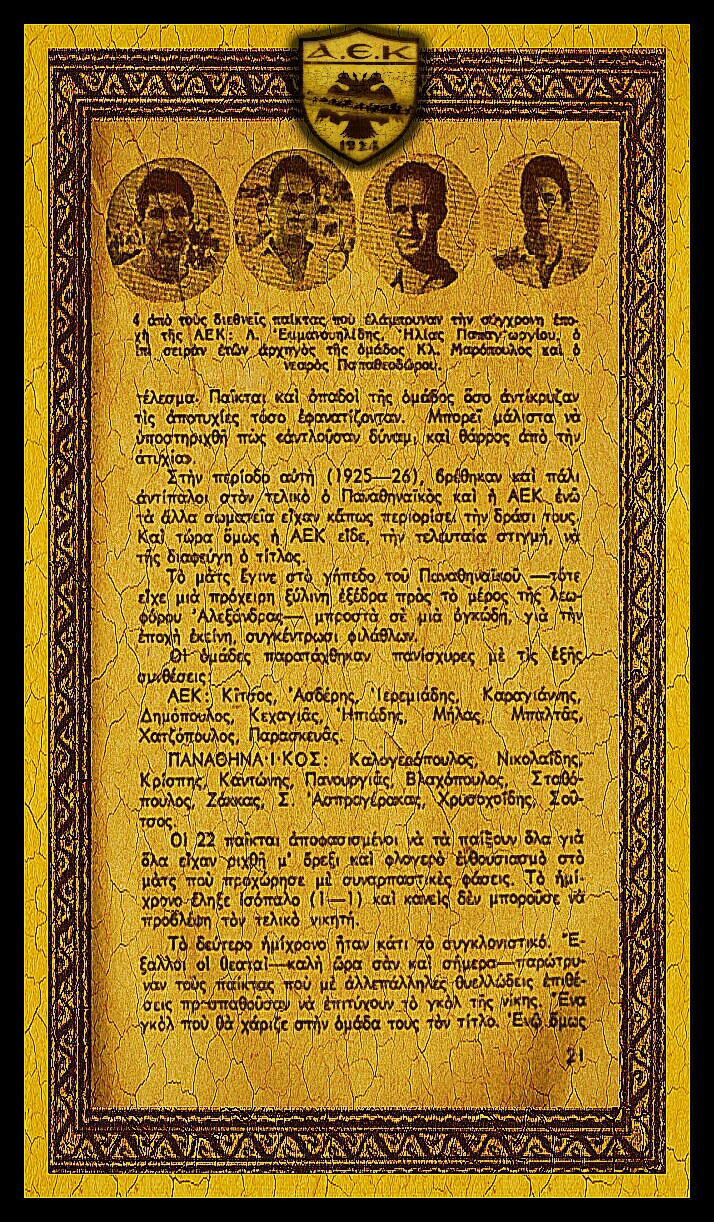 Α.Ε.Κ
1924
4 ἀπὸ τοὺς διεθνεῖς παίκτας ποὺ ἐλάμπρυναν τὴν σύγχρονη ἐπο-
χὴ τῆς ΑΕΚ: Λ. Ἐμμανουηλίδης, Ἠλίας Παπαγεωργίου, ὁ
ἐπὶ σειρὰν ἐτῶν ἀρχηγὸς τῆς ὁμάδος Κλ. Μαρόπουλος καὶ ὁ
νεαρὸς Παπαθεοδώρου.
τέλεσμα. Παῖκται καὶ ὀπαδοὶ τῆς ὁμάδος ὅσο ἀντίκρυζαν
τὶς ἀποτυχίες τόσο ἐφανατίζονταν. Μπορεῖ μάλιστα νὰ
ὑποστηριχθῆ πὼς «ἀντλοῦσαν δύναμι καὶ θάρρος ἀπὸ τὴν
ἀτυχία».
Στὴν περίοδο αὐτὴ (1925—26) βρέθηκαν καὶ πάλι
ἀντίπαλοι στὸν τελικὸ ὁ Παναθηναϊκὸς καὶ ἡ ΑΕΚ ἐνῶ
τὰ ἄλλα σωματεῖα εἶχαν κάπως περιορίσει τὴν δράσι τους.
Καὶ τώρα ὅμως ἡ ΑΕΚ εἶδε, τὴν τελευταία στιγμή, νὰ
τῆς διαφεύγη ὁ τίτλος.
Τὸ μὰτς ἔγινε στὸ γήπεδο τοῦ Παναθηναϊκοῦ —τότε
εἶχε μιὰ πρόχειρη ξύλινη ἐξέδρα πρὸς τὸ μέρος τῆς λεω-
φόρου Ἀλεξάνδρας— μπροστὰ σὲ μιὰ ὀγκώδη, γιὰ τὴν
ἐποχὴ ἐκείνη, συγκέντρωσι φιλάθλων.
Οἱ ὁμάδες παρατάχθηκαν πανίσχυρες μὲ τὶς ἑξῆς
συνθέσεις:
ΑΕΚ: Κίτσος, Ἀσδέρης, Ἰερεμιάδης, Καραγιάννης,
Δημοπουλος, Κεχαγιᾶς, Ἠπιάδης, Μήλας, Μπαλτᾶς,
Χατζόπουλος, Παρασκευᾶς.
ΠΑΝΑΘΗΝΑ·Ι·ΚΟΣ: Καλογερόπουλος, Νικολαΐδης,
Κρίσπης, Καντώνης, Πανουργιᾶς, Βλαχόπουλος, Σταθό-
πουλος, Ζάκκας, Σ. Ἀσπρογέρακας, Χρυσοχοΐδης, Σοῦ-
τσος.
Οἱ 22 παῖκται ἀποφασισμένοι νὰ τὰ παίξουν ὅλα γιὰ
ὅλα εἶχαν ριχθῆ μ' ὄρεξι καὶ φλογερὸ ἐνθουσιασμὸ στὸ
μὰτς ποὺ προχώρησε μὲ συναρπαστικὲς φάσεις. Τὸ ἡμί-
χρονο ἔληξε ἰσόπαλο (1—1) καὶ κανεὶς δὲν μποροῦσε νὰ
προβλέψη τὸν τελικὸ νικητή.
Τὸ δεύτερο ἡμίχρονο ἦταν κάτι τὸ συγκλονιστικό. Ἔ-
ξαλλοι οἱ θεαταὶ—καλὴ ὥρα σὰν καὶ σήμερα—παρώτρυ-
ναν τοὺς παίκτας ποὺ μὲ ἀλλεπάλληλες θυελλώδεις ἐπιθέ-
σεις προσπαθοῦσαν νὰ ἐπιτύχουν τὸ γκὸλ τῆς νίκης. Ἕνα
γκὸλ ποὺ θὰ χάριζε στὴν ὁμάδα τους τὸν τίτλο. Ἐνῶ ὅμως
21